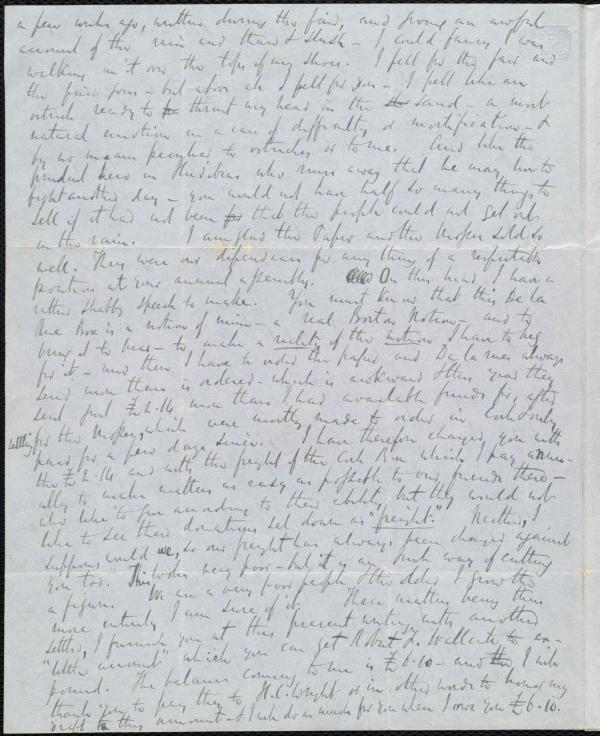 a few weeks ago, written during the fair, and giving an awful
account of the rain and thaw & slush - I could fancy I was
walking in it over the tops of my shoes. I felt for the fair and
the fair - but above all I felt for you - I felt like an
ostrich ready to thrust my head in the sand - a most
natural emotion in a case of difficulty or mortification - &
by no means peculiar to ostriches or to me. And like the
prudent hero in Hudibras who runs away that he may live to
fight another day - you would not have half so many things to
sell if it had not been that the people could not get out
in the rain. I am glad the Papier and the Mosses sold so
well. They were our dependence for any thing of a respectable
position at your annual assembly. On this head I have a
rather shabby speech to make. You must know that this De la
Rue Box is a notion of mine - a real Boston Notion - and to
bring it to bear - to make a reality of the notion I have to beg
for it - and then I have to order the papier and De la rues always
send more than is ordered - which is awkward & this year they
sent just £2.14 more than I had available funds for, after
settling for the Mosses, which were mostly made to order in Cork & only
paid for a few days since. I have therefore charged you with
the £2.14 and with the freight of the Cork Box which I pay annu-
ally to make matters as easy as possible to our friends there -
who like to give according to their ability but they would not
like to see their donations set down as "freight". Neither, I
suppose, would we, so our freight has always been charged against
you too. This looks very poor - but it is any such way of cutting
a figure. We are a very poor people & the older I grow the
more entirely I am sure of it. These matters being thus
settled, I furnish you at this present writing with another
"little account" which you can get Robert F. Wallcut to ex-
pound. The balance coming to me is £6.10 - and I wish
thank you to pay they to H.C. Wright or in other words to honor my
draft to this amount - & I will do as much for you when I owe you £6.10.